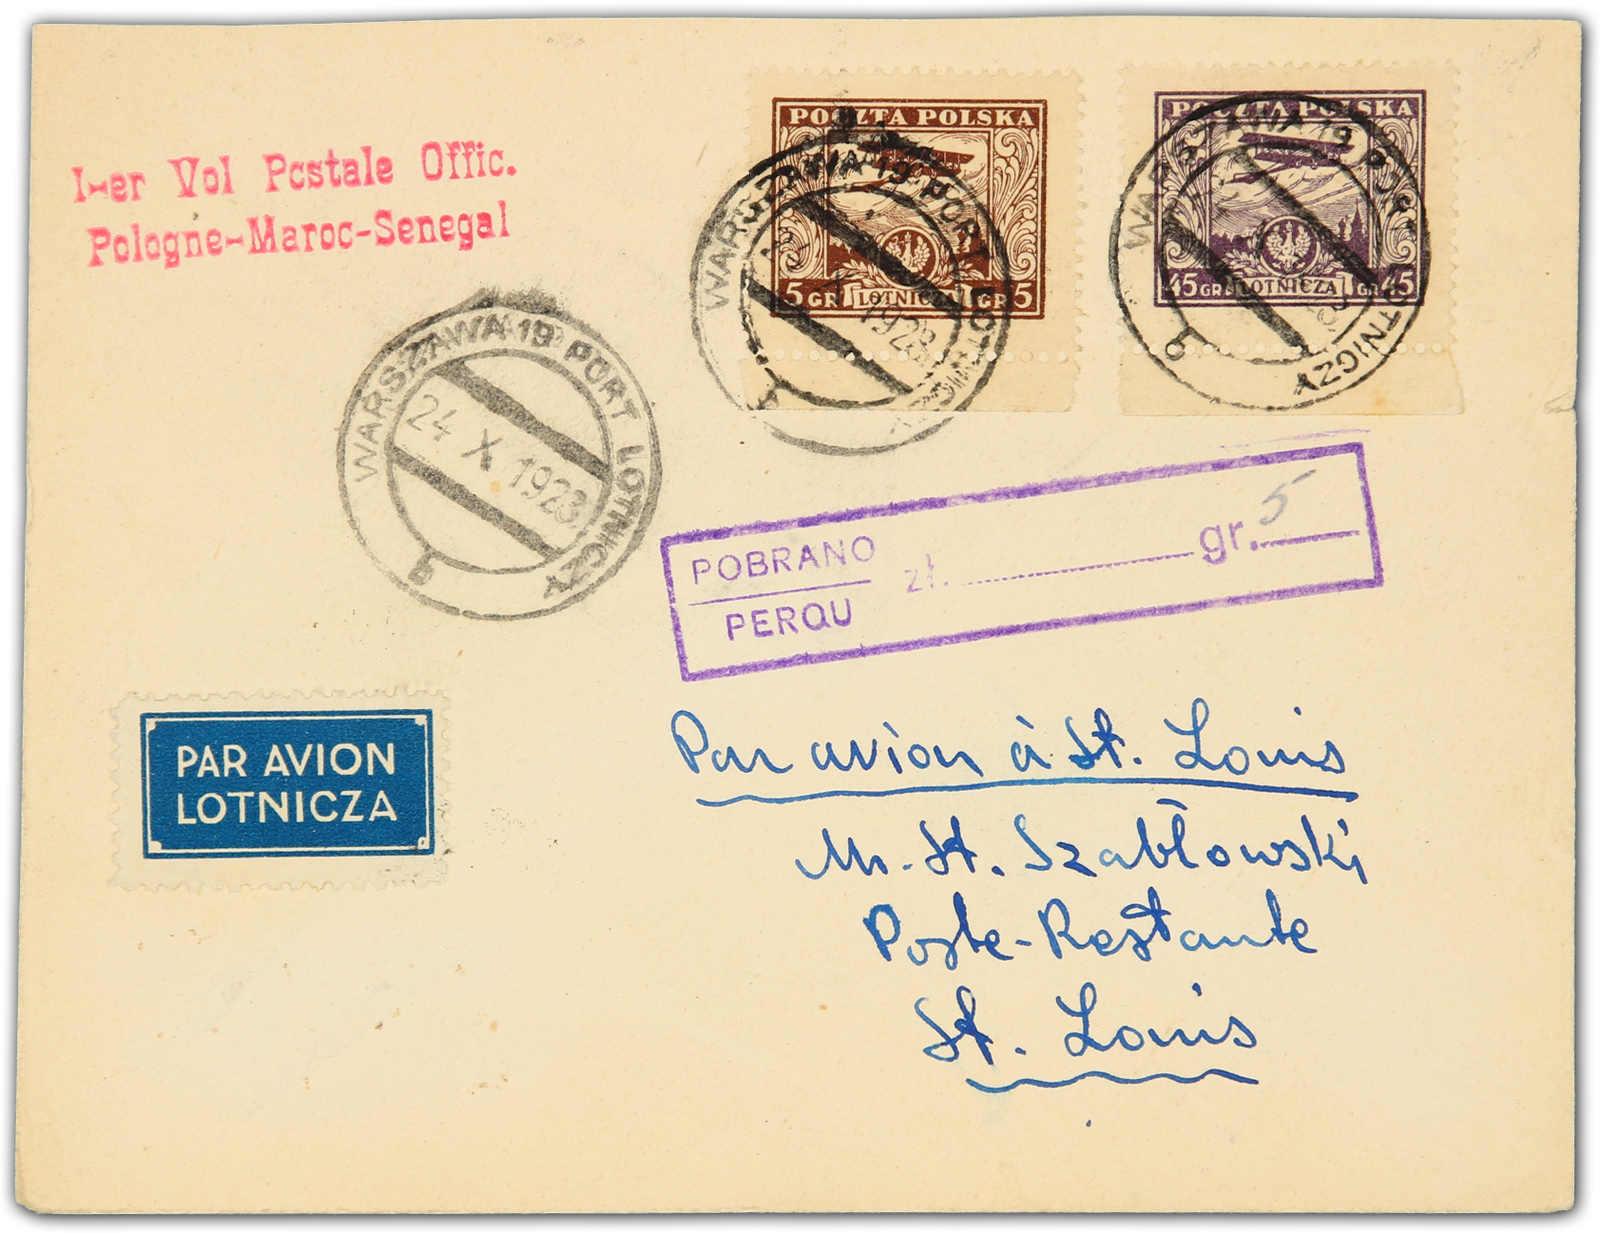 I-er Vol Pcstale Offic.
Pologne-Maroc-Senegal
POCZTA POLSKA
5 GR LOTNICZA GR 5
POCZTA POLSKA
45 GR LOTNICZA GR 45
WARSZAWA 19 PORT LOTNICZY
1928
b
WARSZAWA 19 PORT LOTNICZY
b
WARSZAWA 19 PORT LOTNICZY
24 X 1928
b
POBRANO zł. gr. 5
PERQU
PAR AVION
LOTNICZA
Par avion à St. Louis
Mr. St. Szabłowski
Poste-Restante
St. Louis